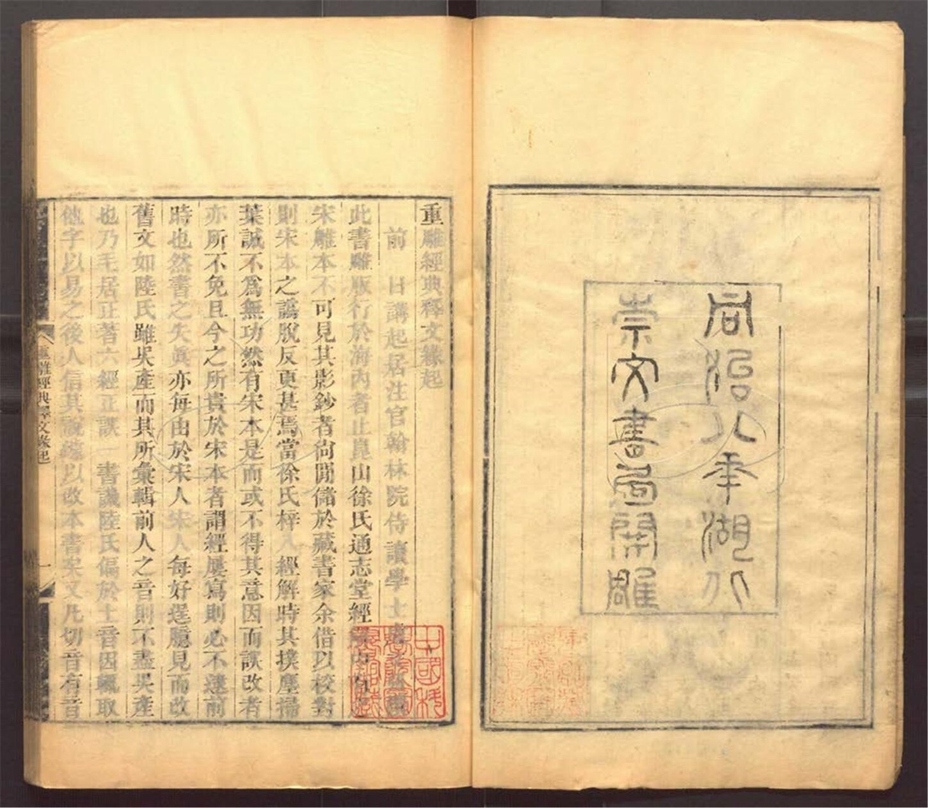 同治八年湖北
崇文書局開雕
重雕經典釋文緣起
前日講起居注官翰林院侍讀學士盧文弨
此書雕版行於海內者止崑山徐氏通志堂經解中有之
宋雕本不可見其影鈔者尙閒儲於藏書家余借以校對
則宋本之譌脫反更甚焉當徐氏梓入經解時其撲塵掃
葉誠不爲無功然有宋本是而或不得其意因而誤改者
亦所不免且今之所貴於宋本者謂經屢寫則必不逮前
時也然書之失眞亦每由於宋人宋人每好逞臆見而改
舊文如陸氏雖吳產而其所彙輯前人之音則不盡吳產
也乃毛居正著六經正誤一書譏陸氏偏於土音因輒取
他字以易之後人信其說遂以改本書矣又凡切音有音
重雕經典釋文緣起
一